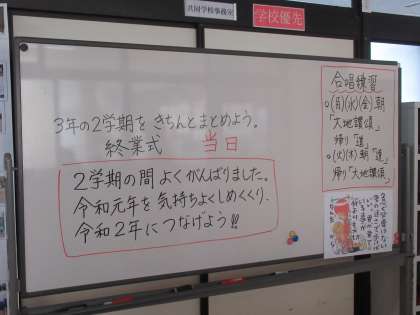 共同学校事務室
学校優先
3年の2学期を きちんとまとめよう。
終業式 当日
2学期の間 よく がんばりました。
令和元年を 気持ちよくしめくくり、
令和2年に つなげよう!!
合唱練習
○(月)(水)(金)朝
「大地讃頌」
帰り「道」
○(火)(木)朝「道」
帰り「大地讃頌」